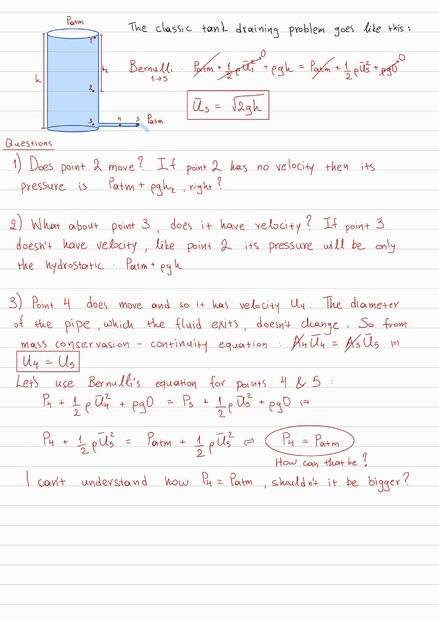 Patm
The classic tank draining problem goes like this:
1
h
h₂
2
3
4
5
Patm
Bernulli: Patm + 1/2 ρū₁² + ρgh = Patm + 1/2 ρū₅² + ρg0
1→5
0
0
ū₅ = √2gh
Questions
1) Does point 2 move? If point 2 has no velocity then its
pressure is Patm + ρgh₂, right?
2) What about point 3, does it have velocity? If point 3
doesn't have velocity, like point 2 its pressure will be only
the hydrostatic: Patm + ρgh
3) Point 4 does move and so it has velocity u₄. The diameter
of the pipe, which the fluid exits, doesn't change. So from
mass conservasion - continuity equation: A₄ū₄ = A₅ū₅ ⇔
u₄ = u₅
Let's use Bernulli's equation for points 4 & 5:
P₄ + 1/2 ρū₄² + ρg0 = P₅ + 1/2 ρū₅² + ρg0 ⇔
P₄ + 1/2 ρū₅² = Patm + 1/2 ρū₅² ⇔ P₄ = Patm
How can that be?
I can't understand how P₄ = Patm, shouldn't it be bigger?